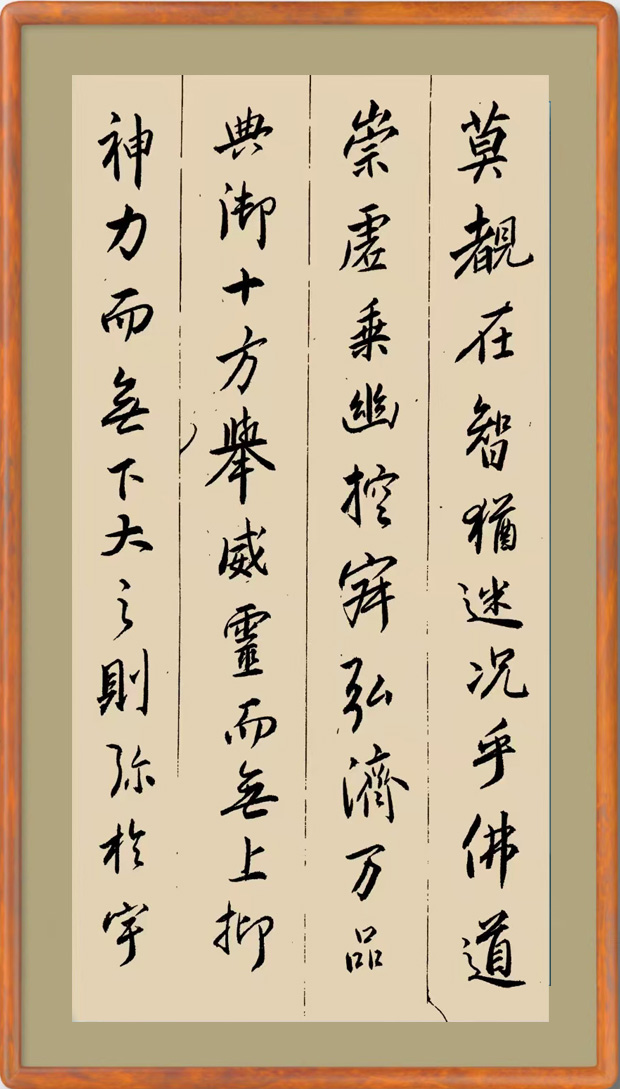 莫覩在智猶迷况乎佛道
崇虛乗幽控寂弘濟万品
典御十方舉威靈而無上抑
神力而無下大之則弥於宇